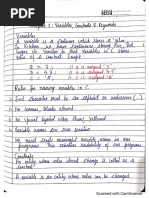 Chapter 1: Variables, Constants & Keywords
Variables
A variable is a container which stores a value.
In kitchen, we have containers storing Rice, Dal,
Sugar etc. Similar to that Variables in C stores
value of a constant. Example:
a = 3; // a is assigned "3"
b = 4.7; // b is assigned
c = 'A'; // c is assigned 'A'
Rules for naming variables in C
1. First character must be an alphabet or underscore (_)
2. No commas, blanks allowed.
3. No special symbol other than (_) allowed.
4. Variable names are case sensitive
We must create meaningful variable names in our
programs. This enhances readability of our
programs.
Constants
An entity whose value doesn't change is called as a
constant.
Scanned with CamScanner